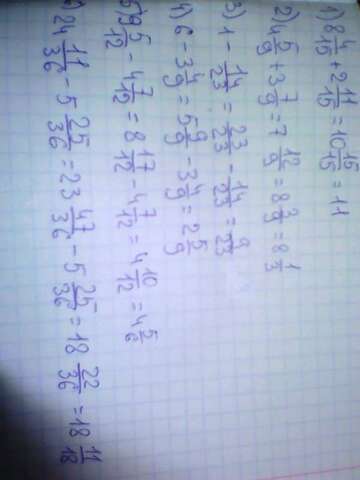 1) 8 4/15 + 2 11/15 = 10 15/15 = 11
2) 4 5/9 + 3 7/9 = 7 12/9 = 8 3/9 = 8 1/3
3) 1 - 14/23 = 23/23 - 14/23 = 9/23
4) 6 - 3 4/9 = 5 9/9 - 3 4/9 = 2 5/9
5) 9 5/12 - 4 7/12 = 8 17/12 - 4 7/12 = 4 10/12 = 4 5/6
24 11/36 - 5 25/36 = 23 47/36 - 5 25/36 = 18 22/36 = 18 11/18